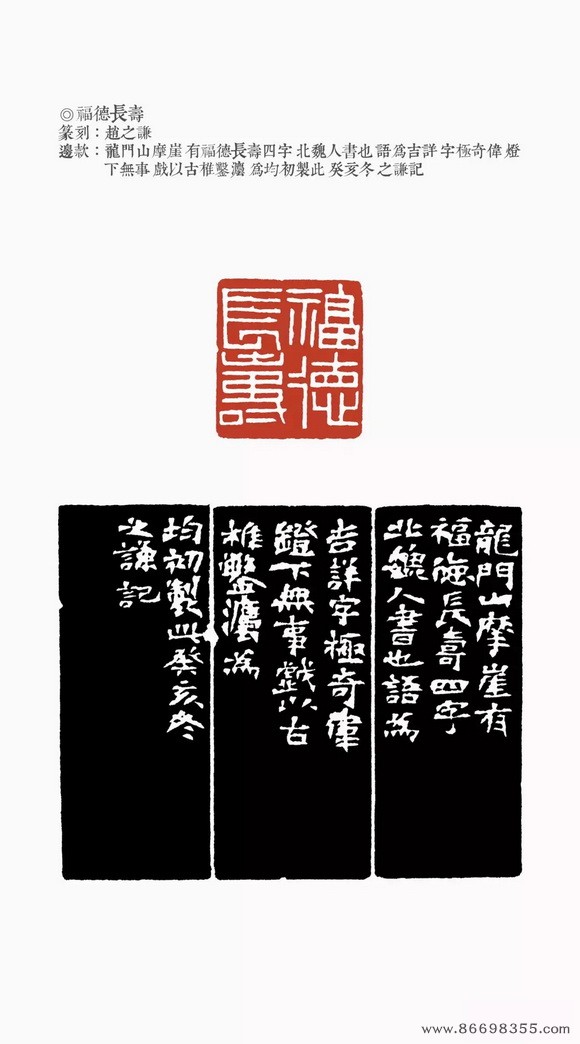 ◎福德長壽
篆刻：趙之謙
邊款：龍門山摩崖有福德長壽四字北魏人書也語為吉詳字極奇偉燈
下無事戲以古椎鑿灋為均初製此癸亥冬之謙記
福德
長壽
龍門山摩崖有
福德長壽四字
北魏人書也語為
吉詳字極奇偉
鐙下無事戲以古
椎鑿灋為
均初製此癸亥冬
之謙記
www.86698355.com